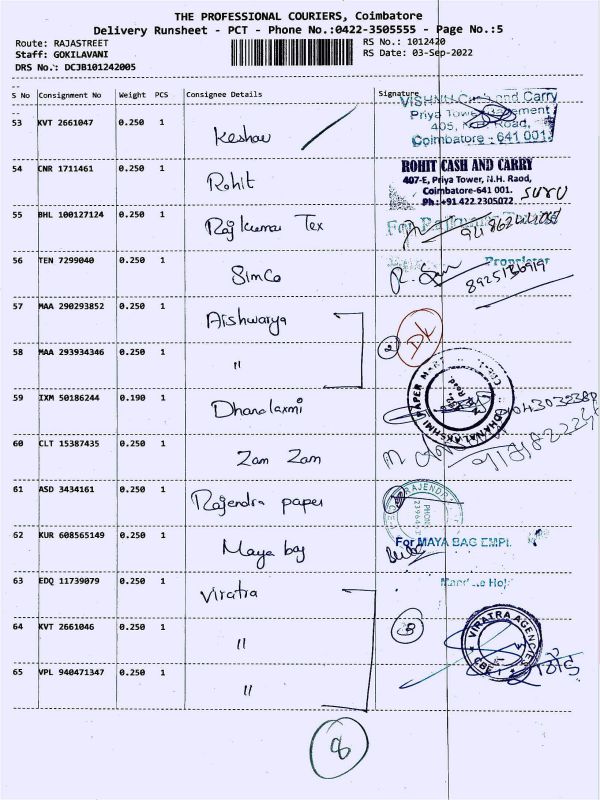 THE PROFESSIONAL COURIERS, Coimbatore
Delivery Runsheet - PCT - Phone No.:0422-3505555 - Page No.:5
Route: RAJASTREET
Staff: GOKILAVANI
DRS No.: DCJB101242005
RS No.: 1012420
RS Date: 03-Sep-2022
S No Consignment No Weight PCS Consignee Details Signature
53 KVT 2661047 0.250 1 Keshav
VISHNU Cash and Carry
Priya Tower Basement
405, Road,
Coimbatore - 641 001
54 CNR 1711461 0.250 1 Rohit
ROHIT CASH AND CARRY
407-E, Priya Tower, N.H. Raod,
Coimbatore-641 001.
Ph : +91 422 2305072
55 BHL 100127124 0.250 1 Raj kumar Tex
For
56 TEN 7299040 0.250 1 SimCo
Proprietor
8925136919
57 MAA 290293852 0.250 1 Aishwarya
58 MAA 293934346 0.250 1 "
2
DK
59 IXM 50186244 0.190 1 Dhanalaxmi
DHANALAKSHMI PAPER
60 CLT 15387435 0.250 1 Zam Zam
61 ASD 3434161 0.250 1 Rajendra paper
RAJENDRA
62 KUR 608565149 0.250 1 Maya bag
For MAYA BAG EMPI.
63 EDQ 11739079 0.250 1 Viratra
64 KVT 2661046 0.250 1 "
3
VIRATRA AGENCIES
65 VPL 940471347 0.250 1 "
8